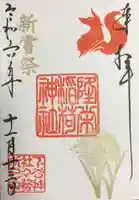 奉拝
稲荷
神社
新嘗祭
令和六年
十一月廿三日